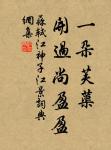 一朵芙蕖
開過尚盈盈
蘇軾江神子江景詞典
網集